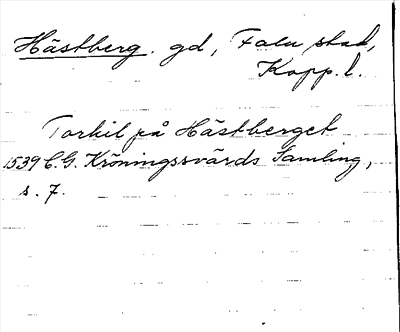 Hästberg. gd, Falu stad,
Kopp. l.
Torkil på Hästberget
1539 C. G. Kröningssvärds Samling,
s. 7.